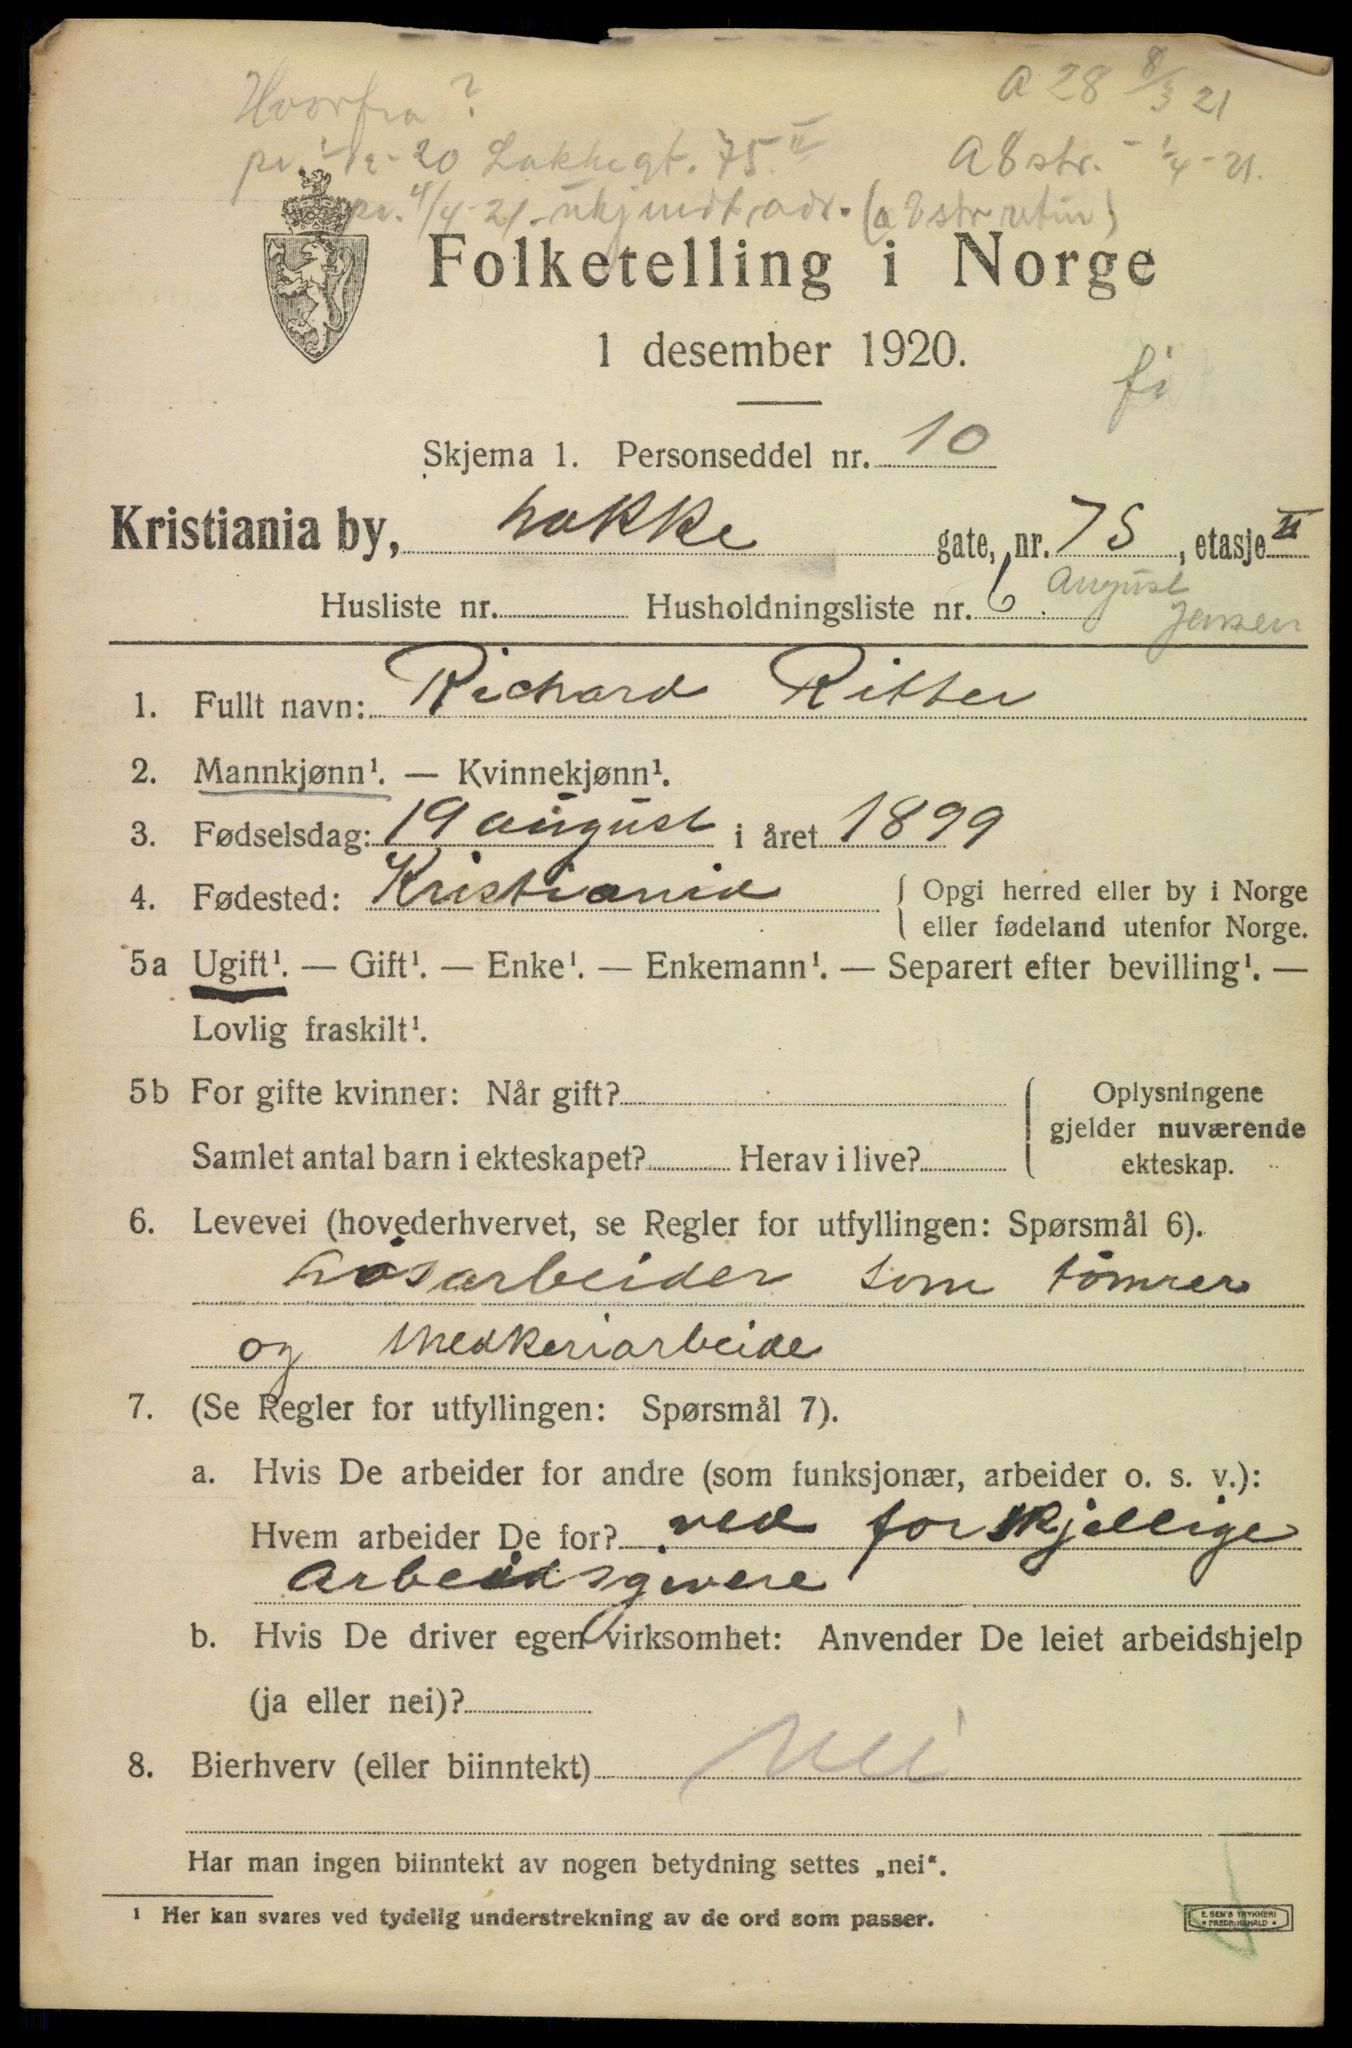 Hvorfra?
A 28 8/3 21
pr. 1/12-20 Lakkegt. 75 II
A 8 str. - 1/4-21.
pr. 4/4-21. ukjendt adr. (a 8 str retur)
Folketelling i Norge
1 desember 1920.
fi
Skjema 1. Personseddel nr. 10
Kristiania by, Lakke gate, nr. 75, etasje II
Husliste nr. Husholdningsliste nr. 6 August Jensen
1. Fullt navn: Richard Ritter
2. Mannkjønn¹. — Kvinnekjønn¹.
3. Fødselsdag: 19 august i året 1899
4. Fødested: Kristiania { Opgi herred eller by i Norge
eller fødeland utenfor Norge.
5a Ugift¹. — Gift¹. — Enke¹. — Enkemann¹. — Separert efter bevilling¹. —
Lovlig fraskilt¹.
5b For gifte kvinner: Når gift? { Oplysningene
gjelder nuværende
Samlet antal barn i ekteskapet? Herav i live? ekteskap.
6. Levevei (hovederhvervet, se Regler for utfyllingen: Spørsmål 6).
Løsarbeider som tømrer
og snedkeriarbeide
7. (Se Regler for utfyllingen: Spørsmål 7).
a. Hvis De arbeider for andre (som funksjonær, arbeider o. s. v.):
Hvem arbeider De for? ved forskjellige
Arbeidsgivere
b. Hvis De driver egen virksomhet: Anvender De leiet arbeidshjelp
(ja eller nei)?
8. Bierhverv (eller biinntekt) Nei
Har man ingen biinntekt av nogen betydning settes „nei“.
¹ Her kan svares ved tydelig understrekning av de ord som passer.
E. SEM'S TRYKKERI
FREDRIKSHALD